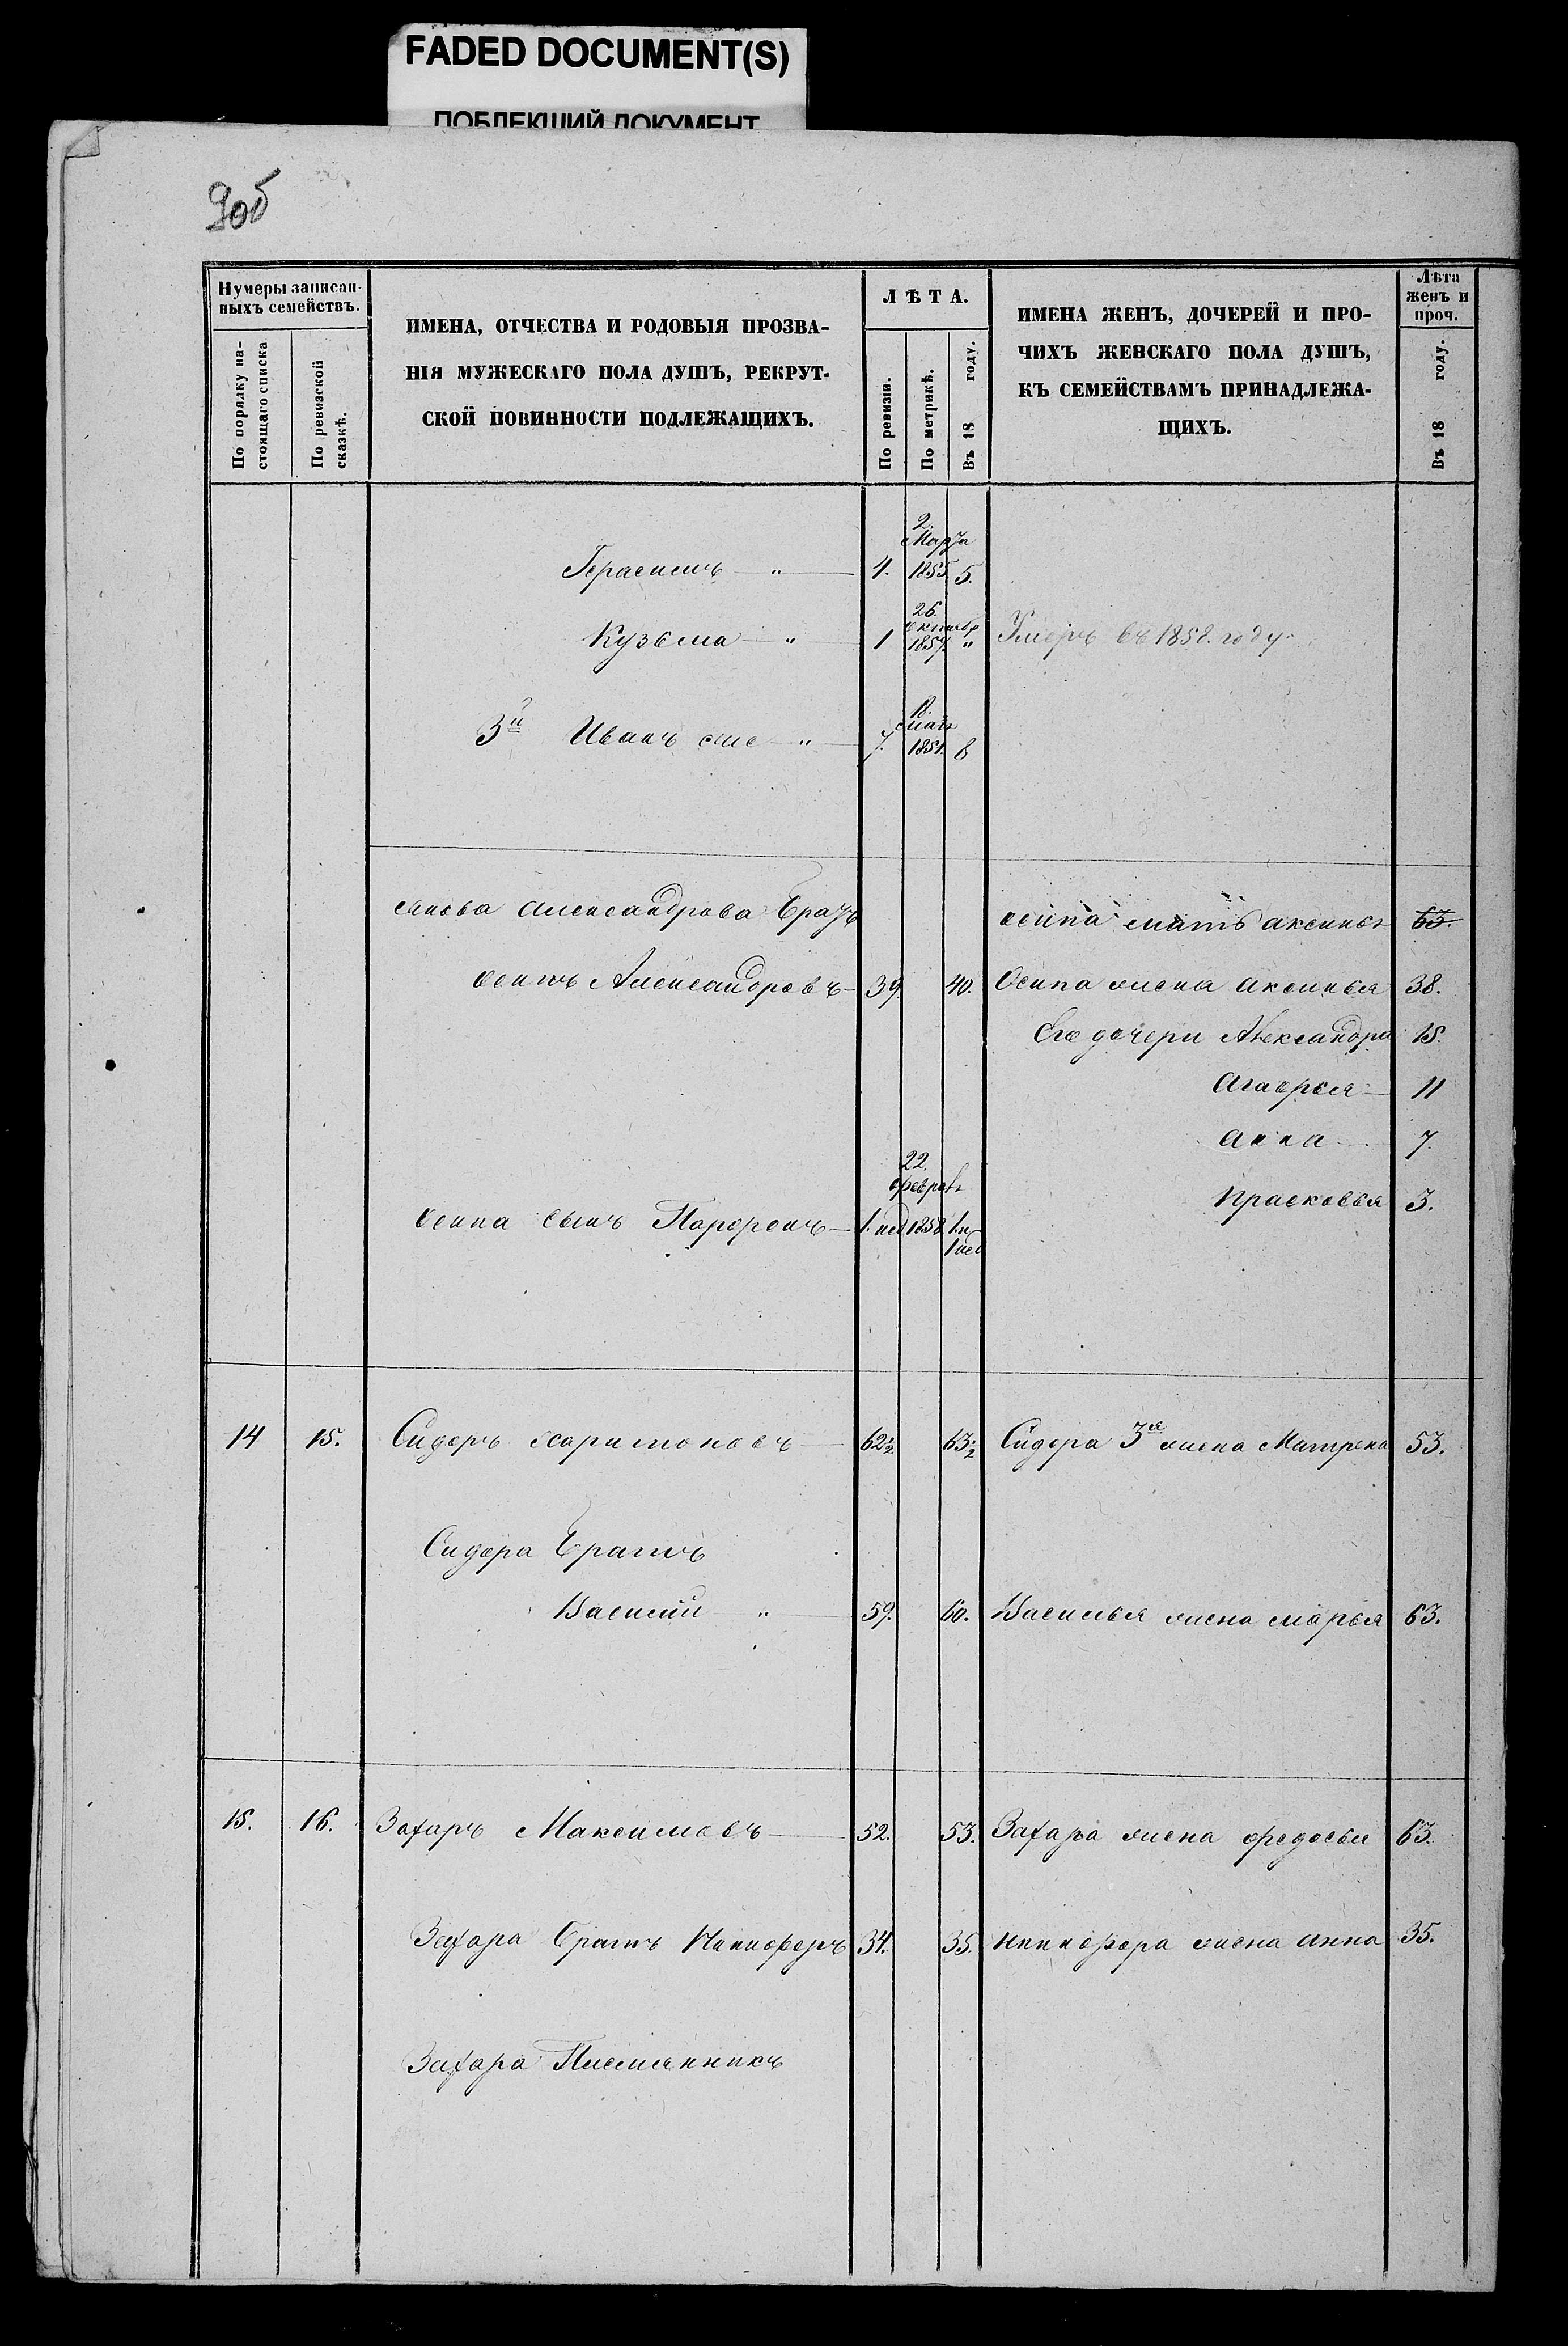 FADED DOCUMENT(S)
ПОБЛЕКШИЙ ДОКУМЕНТ
Нумеры записан-
ныхъ семействъ.
По порядку на-
стоящаго списка
По ревизской
сказкѣ.
ИМЕНА, ОТЧЕСТВА И РОДОВЫЯ ПРОЗВА-
НІЯ МУЖЕСКАГО ПОЛА ДУШЪ, РЕКРУТ-
СКОЙ ПОВИННОСТИ ПОДЛЕЖАЩИХЪ.
ЛѢТА.
По ревизіи.
По метрикѣ.
Въ 18 году.
ИМЕНА ЖЕНЪ, ДОЧЕРЕЙ И ПРО-
ЧИХЪ ЖЕНСКАГО ПОЛА ДУШЪ,
КЪ СЕМЕЙСТВАМЪ ПРИНАДЛЕЖА-
ЩИХЪ.
Лѣта
женъ и
проч.
Въ 18 году.
Герасимъ — " — 4. 2. Марта 1855. 5.
Кузьма — " 1 26. октябр 1857. " Умеръ въ 1858. году.
3й Иванъ " 7. 1851. 8
Александрова братъ
осипа мать аксинья 63.
осипъ Александровъ — 39 40. Осипа жена аксинья 38.
Его дочери Александра 15.
Агафья — 11
анна — 7.
прасковья 3.
осипа сынъ Парфенъ — 1. нед 22. феврал 1858. 1. г. 1 нед
14 15. Сидоръ харитоновъ — 62½ 63½ Сидора 3я жена Матрена 53.
Сидора братъ
Василий " — 59. 60. Василья жена марья 63.
15. 16. Захаръ Максимовъ — 52. 53. Захара жена федосья 63.
Захара братъ Никифоръ 34. 35. никифора жена анна 35.
Захара Племянникъ